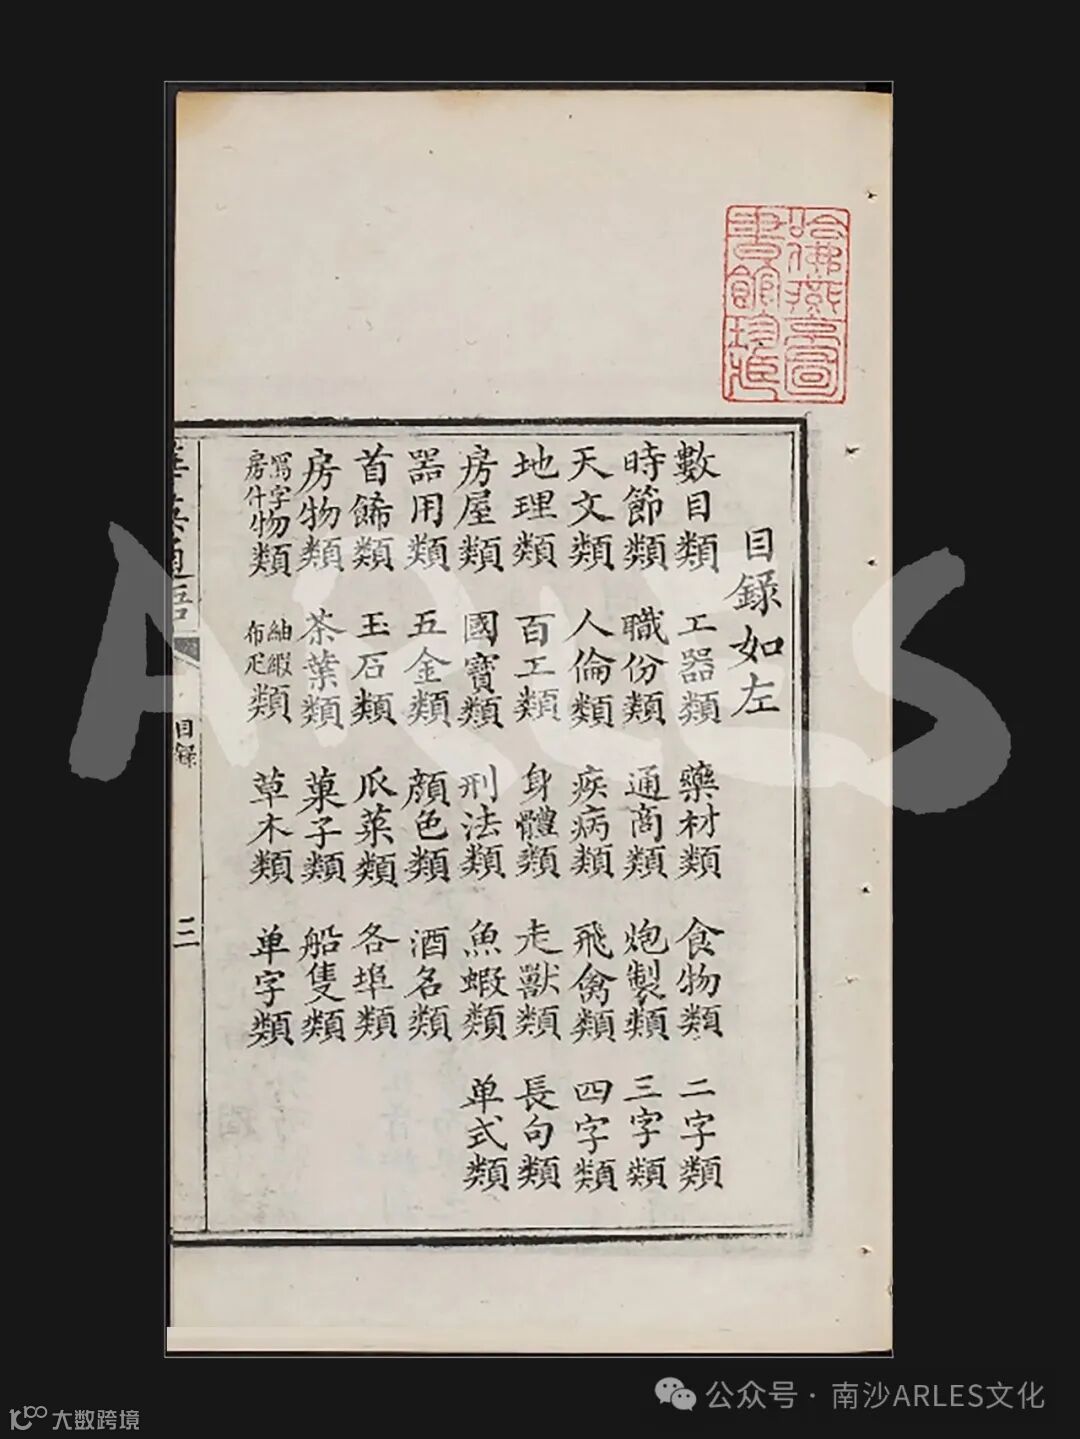 哈佛燕京圖
書館珍藏
目錄如左
數目類 工器類 藥材類 食物類 二字類
時節類 職份類 通商類 炮製類 三字類
天文類 人倫類 疾病類 飛禽類 四字類
地理類 百工類 身體類 走獸類 長句類
房屋類 國寶類 刑法類 魚蝦類 单式類
器用類 五金類 顏色類 酒名類
首餙類 玉石類 瓜菜類 各埠類
房物類 茶葉類 菓子類 船隻類
寫字房什物類 紬緞布疋類 草木類 单字類
目錄 三
ARLES
公众号·南沙ARLES文化
大数跨境